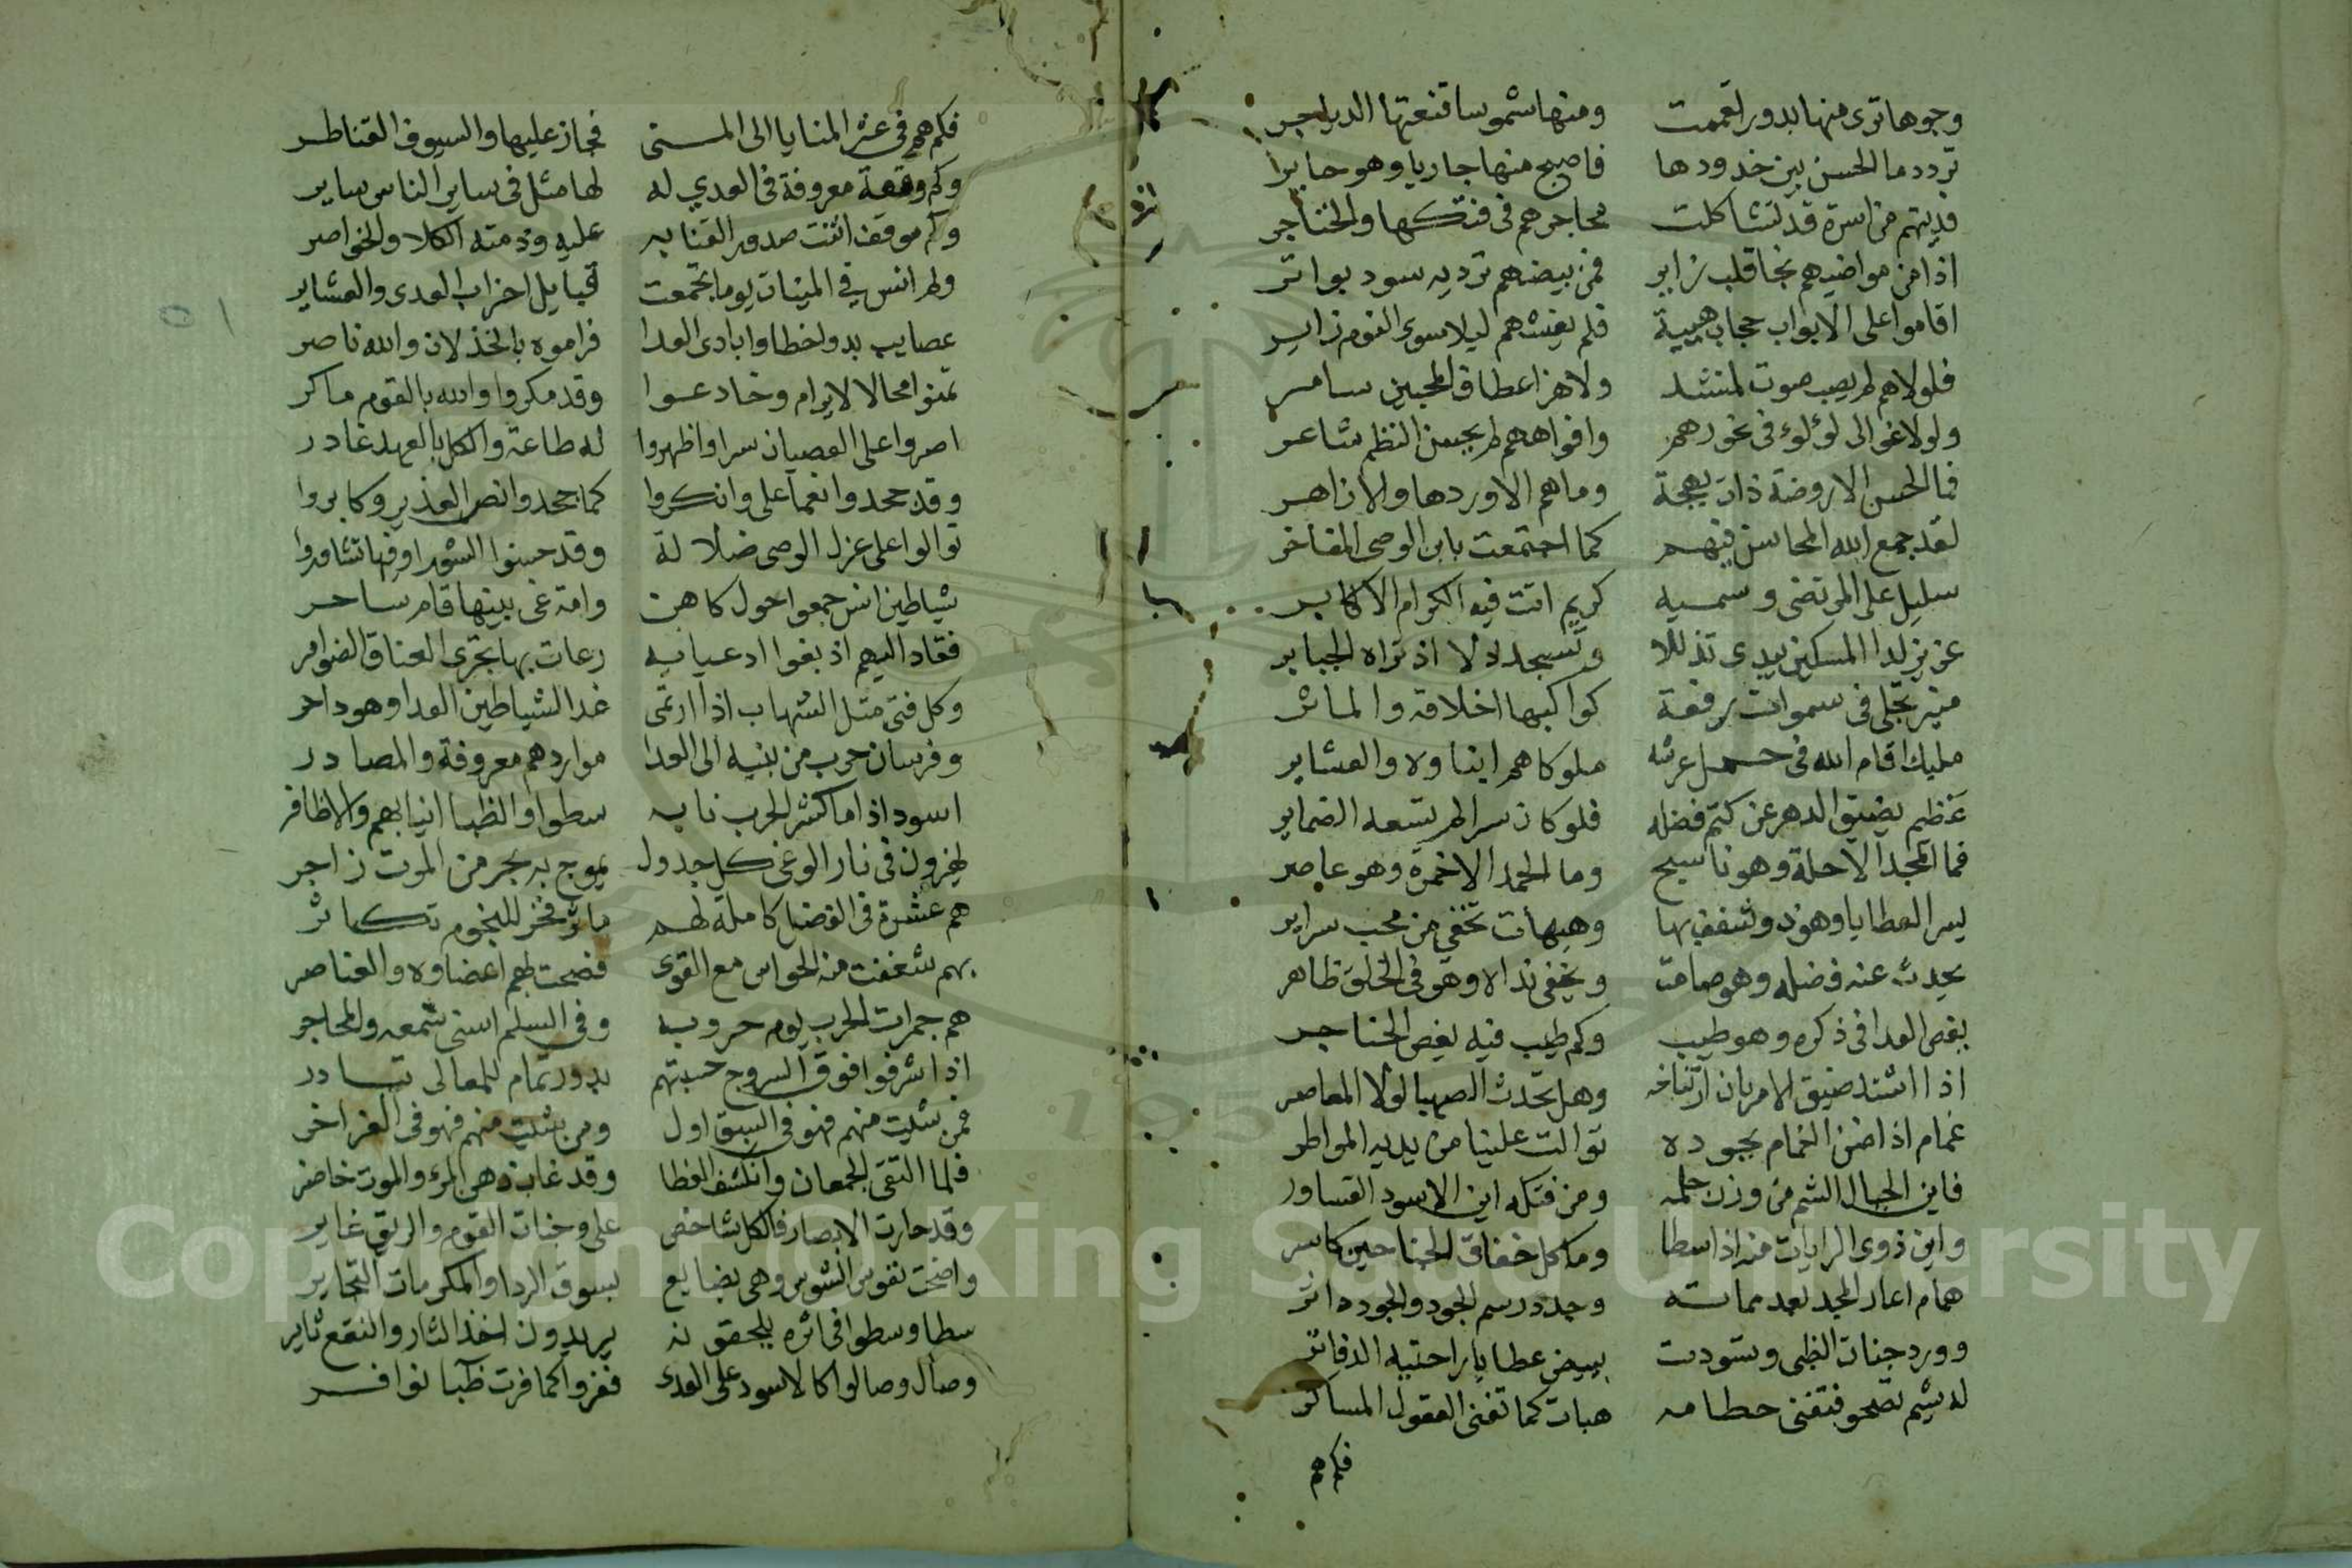 وجوها ترى منها بدورا تعممت ومنها شموسا قنعتها الدياجر
تردد ما الحسن بين خدودها فاصبح منها جاريا وهو حايرا
فديتهم من اسرة قد تشاكلت محاجرهم في فتكها والخناجر
اذا من مواضيهم نجا قلب زاير فمن بيضهم ترديه سود بواتر
اقاموا على الابواب حجاب هيبة فلم يغشهم ليلا سوى النوم زاير
فلولاهم لم يصب صوت لمنشد ولا هز اعطاف المحبين سامر
ولولا غوالى لؤلوء في نحورهم وافواههم لم يحسن النظم شاعر
فما الحسن الا روضة ذات بهجة وما هم الا وردها والازاهر
لقد جمع الله المحاسن فيهم كما اجتمعت بابن الوصى المفاخر
سليل على المرتضى وسميه كريم اتت فيه الكرام الاكابر
عزيز لدا المسكين يبدى تذللا وتسجد ذلا اذ تراه الجبابر
منير تجلى في سموات رفعة كواكبها اخلاقه والماثر
مليك اقام الله في حمل عرشه ملوكا هم ابناوه والعشاير
عظيم يضيق الدهر عن كتم فضله فلو كان سرا لم تسعه الضماير
فما المجد الا حلة وهو ناسج وما الحمد الا خمرة وهو عاصر
يسر العطايا وهو ذو شغف بها وهيهات تخفي من محب سراير
يحدث عنه فضله وهو صامت ويخفى نداه وهو في الخلق ظاهر
يغص العدا في ذكره وهو طيب وكم طيب فيه يغص الحناجر
اذا اشتد ضيق الامر بان ارتخاه وهل تحدث الصهبا لولا المعاصر
غمام اذا ضن الغمام بجوده توالت علينا من يديه المواطر
فاين الجبال الشم من وزن حلمه ومن فتكه اين الاسود القساور
واين ذوى الرايات منه اذا سطا وما كل خفاق الجناحين كاسر
همام اعاد المجد بعد مماته وجدد رسم الجود والجود داثر
وورد جنات الظبى وتسودت ببيض عطايا راحتيه الدفاتر
له شيم تصحو فتفنى حطامه هبات كما تفنى العقول المساكر
فكم هم
فكم هم في عثر المنايا الى المنى فجاز عليها والسيوف القناطر
وكم وقعة معروفة في العدي له لها مثل في ساير الناس ساير
وكم موقف اثنت صدور القنا به عليه وذمته الكلا والخواصر
ولم انس في الميناث يوما تجمعت قبايل احزاب العدى والعشاير
عصايب بدو اخطاوا بادى العدا فراموه بالخذلان والله ناصر
تمنوا محالا لا يرام وخادعوا وقد مكروا والله بالقوم ماكر
اصروا على العصيان سرا واظهروا له طاعة والكل بالعهد غادر
وقد جحدوا نعما على وانكروا كما جحدوا نص الغدير وكابروا
توالوا على عزل الوصى ضلالة وقد حسنوا الشورا وفيها تشاوروا
شياطين انس جمعوا حول كاهن وامة غى بينها قام ساحر
فقاد اليهم اذ بغوا ادعيايه رعات بها تجرى العتاق الضوامر
وكل فتى مثل الشهاب اذا ارتمى غدا لشياطين العدا وهو داحر
وفرسان حرب من بنيه الى العدا مواردهم معروفة والمصادر
اسود اذا ما كشر الحرب نابه سطوا والظبا انيابهم والاظافر
يخرون في نار الوغى كل جدول يموج به بحر من الموت زاجر
هم عشرة في الفضل كاملة لهم ماثر فخر للنجوم تكاثر
بهم شغفت منه الحواس مع القوى فضحت لهم اعضاوه والعناصر
هم جمرات الحرب يوم حروبه وفي السلم اسنى شمعه والمحاجر
اذا اشرفوا فوق السروج حسبتهم بدور تمام للمعالى تبادر
فمن شيت منهم فهو في السبق اول ومن شيت منهم فهو في الغر اخر
فلما التقى الجمعان وانكشف الغطا وقد غاب ذهن المرء والموت حاضر
وقد حارت الابصار فالكل شاخص على وجنات القوم والريق غاير
واضحت نفوس الشوس وهى بضايع بسوق الردا والمكرمات التجاير
سطا وسطوا في اثره يلحقونه يريدون اخذ الثار والنقع ثاير
وصال وصالوا كالاسود على العدى ففروا كما فرت ظبا نوافر
Copyright © King Saud University